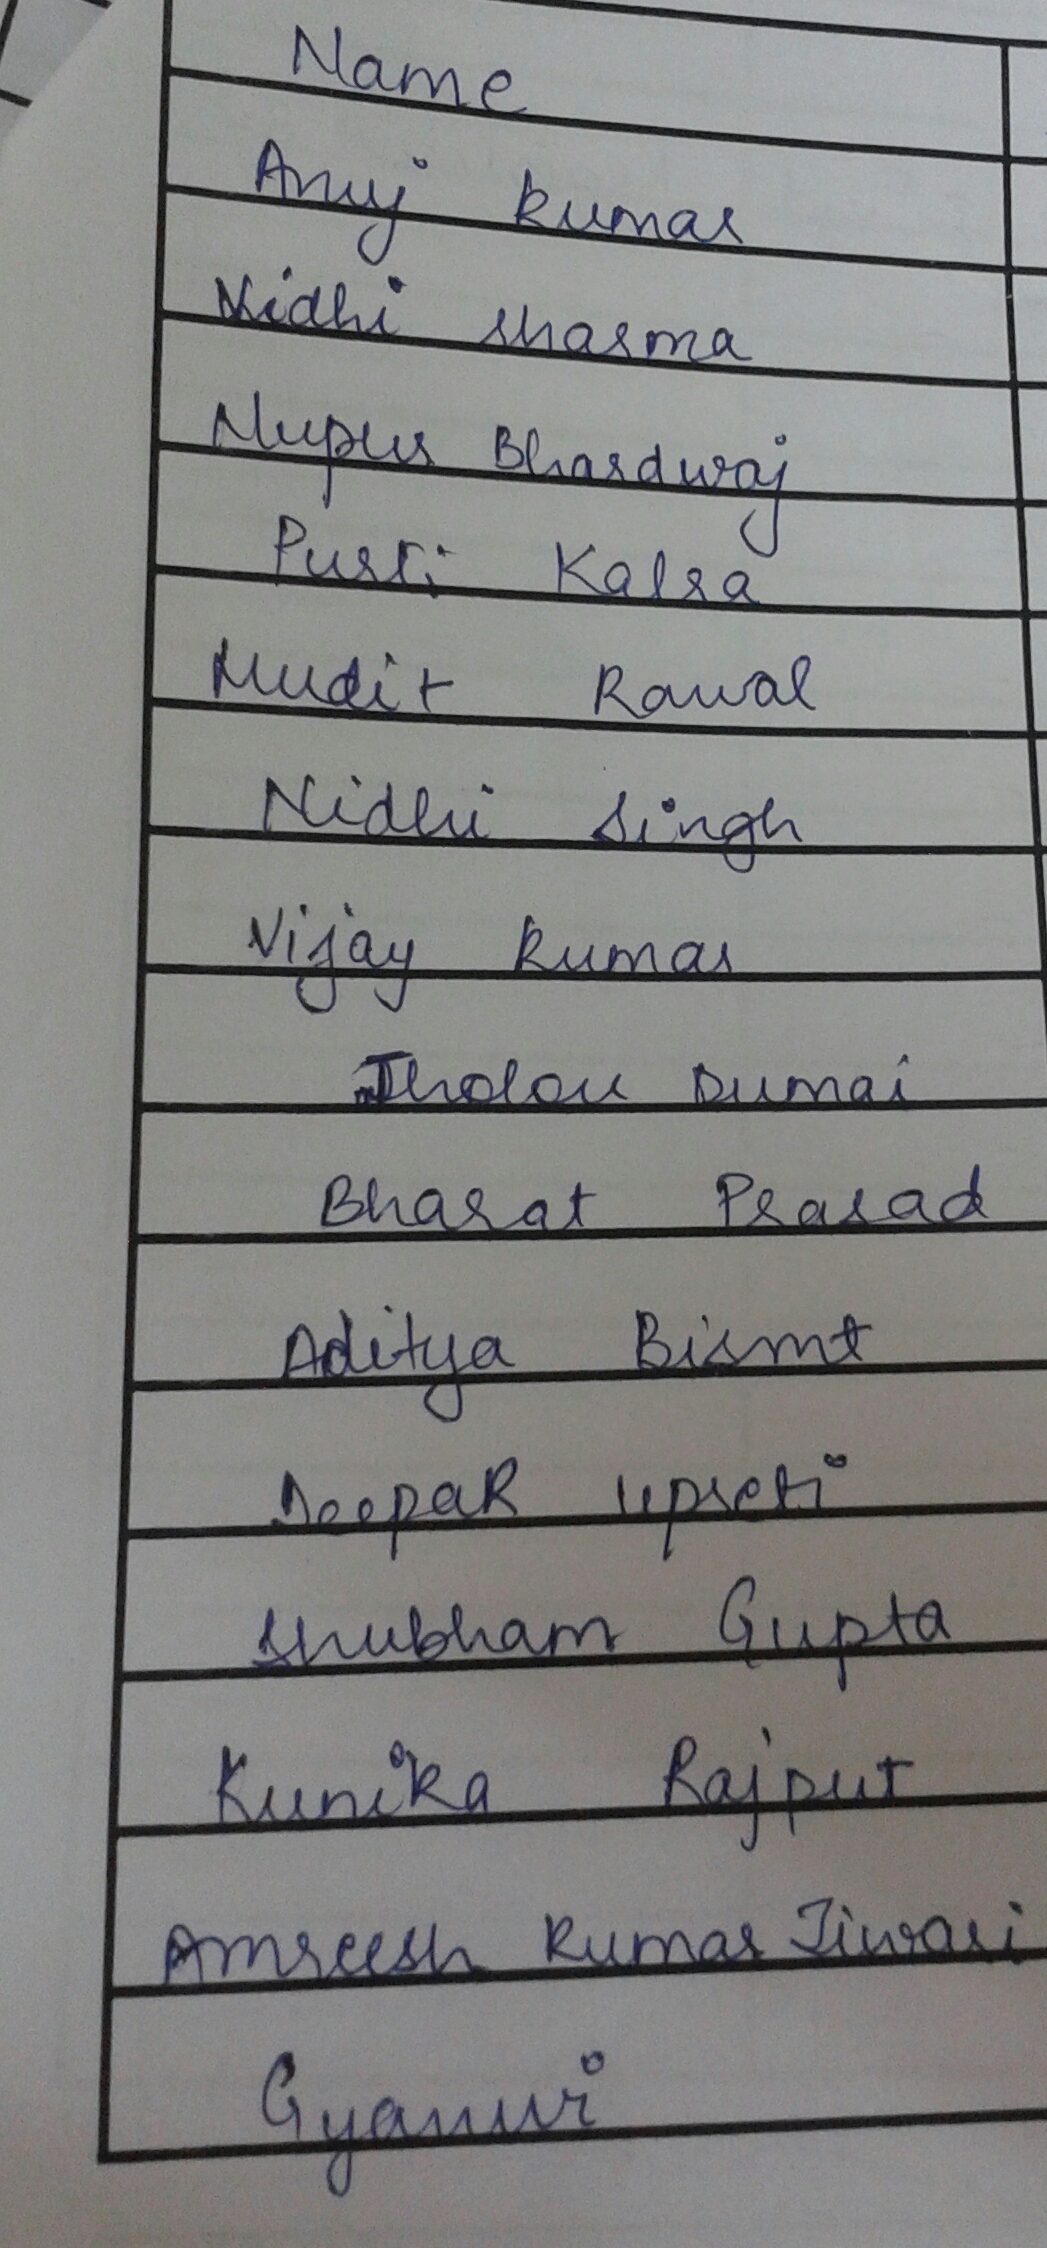 Name
Anuj Kumar
Nidhi Sharma
Nupur Bhardwaj
Purti Kalra
Mudit Rawal
Nidhi Singh
Vijay Kumar
Dumai
Bharat Prasad
Aditya Bismt
Deepak Upreti
Shubham Gupta
Kunika Rajput
Amreesh Kumar Tiwari
Gyanvi